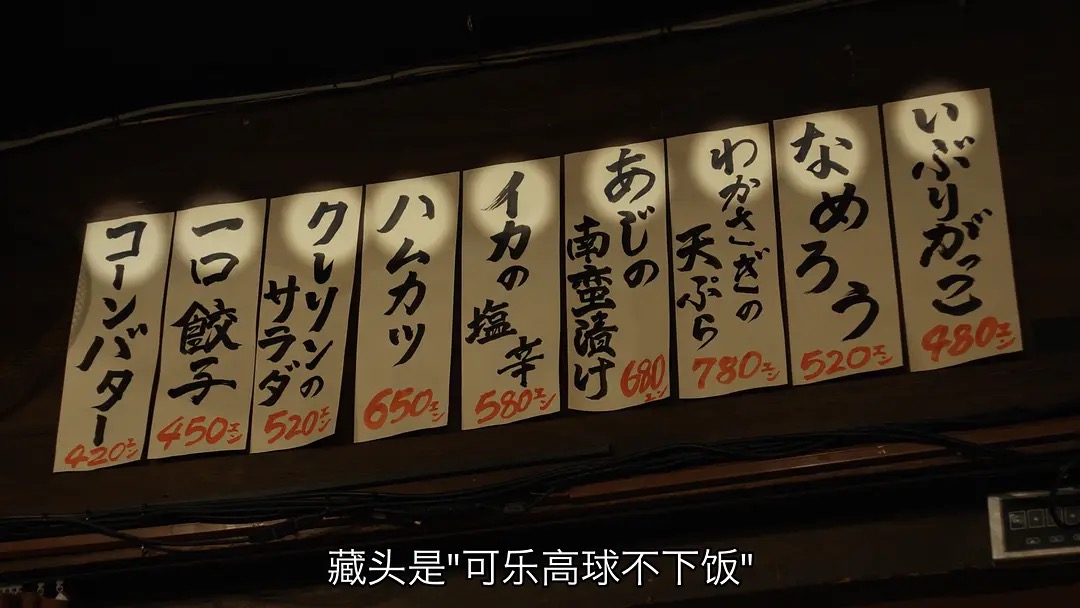 コーンバター
420エン
一口餃子
450エン
クレソンの
サラダ
520エン
ハムカツ
650エン
イカの
塩辛
580エン
あじの
南蛮漬け
680エン
わかさぎの
天ぷら
780エン
なめ
ろう
520エン
いぶりがっこ
480エン
藏头是"可乐高球不下饭"